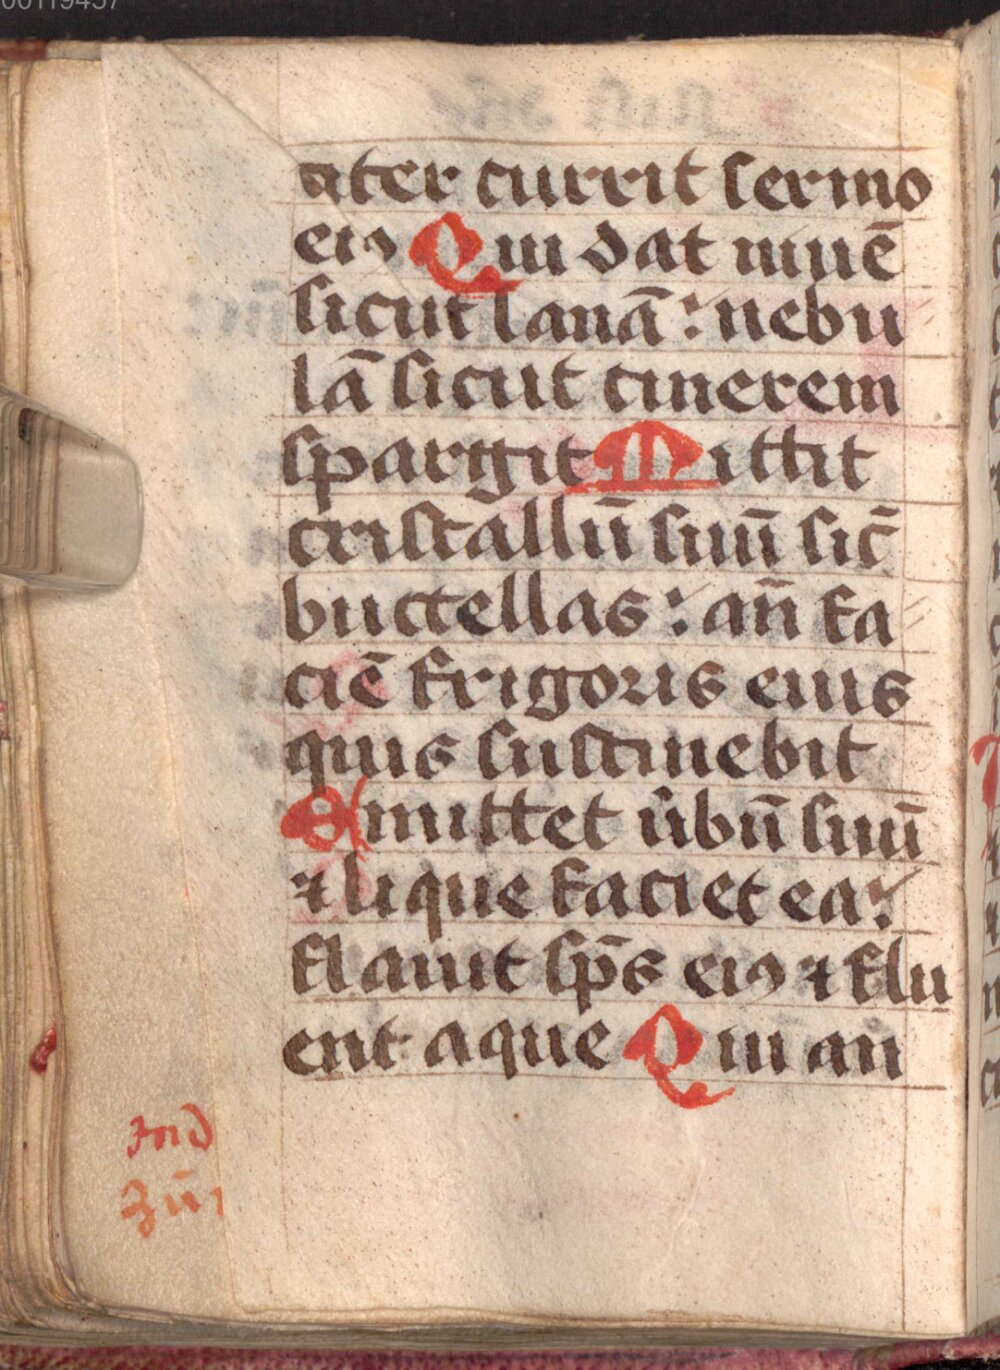 citer currit sermo
eiꝰ Qui dat niuē
sicut lanā: nebu
lā sicut cinerem
spargit Mittit
cristallū suū sic̄
buccellas: an̄ fa
ciē frigoris eius
quis sustinebit
Emittet u̅bū suū
⁊ liquefaciet ea:
flauit sp̄s eiꝰ ⁊ flu
ent aque Qui an